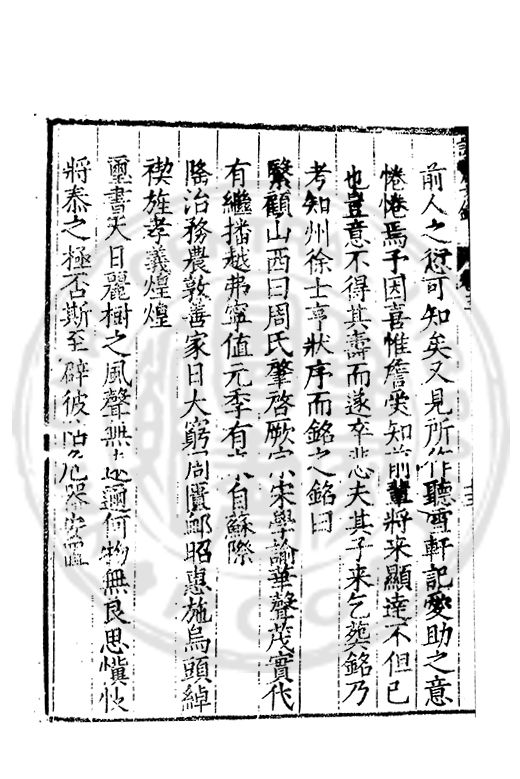 前人之愆可知矣又見所作聽雪軒記愛助之意
惓惓焉予因喜惟詹奭知前輩將來顯達不但已
也豈意不得其壽而遂卒悲夫其子来乞葬銘乃
考知州徐士亨狀序而銘之銘曰
繄顧山西曰周氏肇啓厥宗宋學諭華聲茂實代
有繼播越弗寧值元季有自蘇際
隆治務農敦善家日大窮周匱鄉昭惠施烏頭綽
楔旌孝義煌煌
璽書天日麗樹之風聲無遠邇何物無良思愼忮
將泰之極否斯至辟彼危器安置